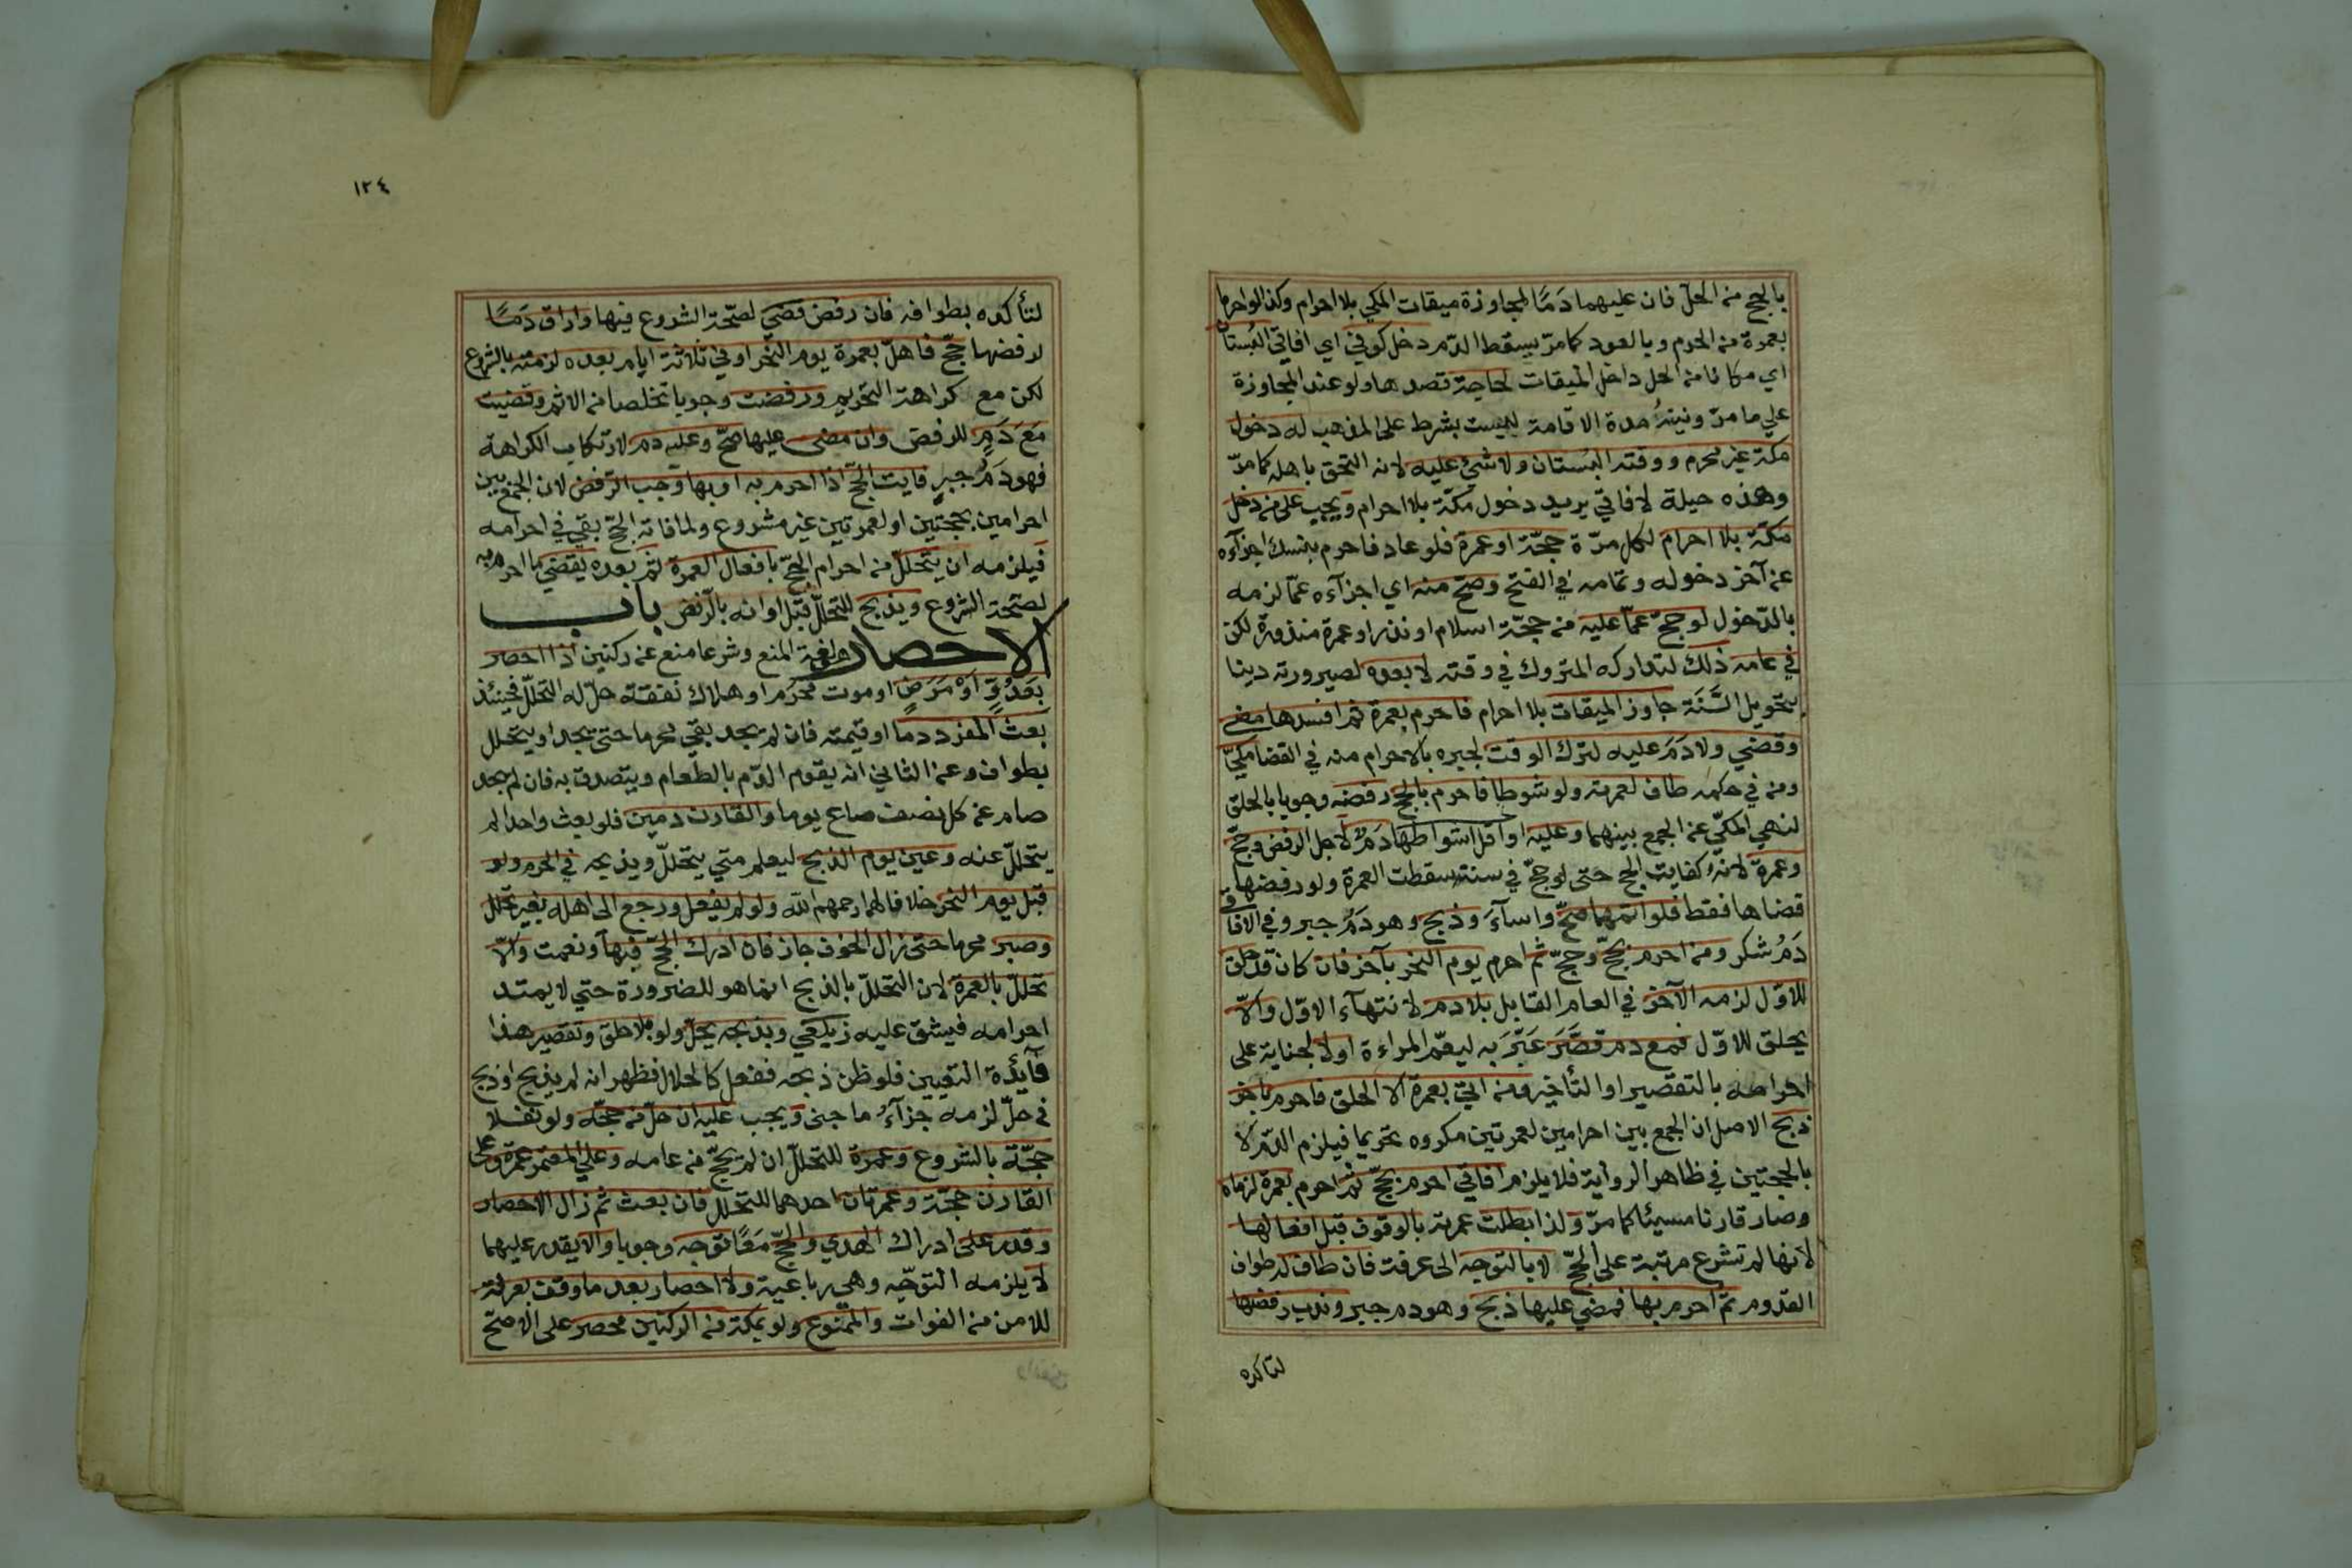 بالحج من الحل فان عليهما دَمًا لمجاوزة ميقات المكي بلا احرام وكذا لو احرما
بعمرة من الحرم وبالعود كما مرّ يسقط الدّم دخل كوفي اي افاقي البُستان
اي مكانا من الحل داخل الميقات لحاجة قصدها ولو عند المجاوزة
علي ما مرّ ونيّةُ مدة الاقامة ليست بشرط على المذهب له دخول
مكة غير محرم ووقته البُستان ولا شئ عليه لانه التحق باهله كما مرّ
وهذه حيلة لافاقي يريد دخول مكّة بلا احرام ويجب على من دخل
مكّة بلا احرام لكل مرّة حجّة او عمرة فلو عاد فاحرم بنسك اجزآءه
عن آخر دخوله وتمامه في الفتح وصحّ منه اي اجزآءه عمّا لزمه
بالدّخول لو حجّ عمّا عليه من حجّة اسلام او نذر او عمرة منذورة لكن
في عامه ذلك لتداركه المتروك في وقته لا بعده لصيرورته دينا
بتحويل السَّنَة جاوز الميقات بلا احرام فاحرم بعمرة ثم افسدها مضى
وقضي ولا دَمَ عليه لترك الوقت لجبره بالاحرام منه في القضا مكيّ
ومن في حكمه طاف لعمرته ولو شوطا فاحرم بالحج رفضه وجوبا بالحلق
لنهي المكيّ عن الجمع بينهما وعليه او اقل اشواطها دَمٌ لاجل الرفض وحجّ
وعمرة لانهُ كفايت الحج حتى لو حجّ في سنته سقطت العمرة ولو رفضها
قضاها فقط فلو اتمهما صحّ واسآءَ وذبح وهو دَمُ جبر وفي الافاقي
دَمُ شكر ومن احرم بحجّ وحجّ ثم احرم يوم النحر بآخر فان كان قد حلق
للاوّل لزمه الآخر في العام القابل بلا دم لانتهآء الاوّل والاّ
يحلق للاوّل فمع دم قَصَّرَ عَبَّرَ به ليعمّ المراءة اولا لجناية على
احرامه بالتقصير او التأخير ومن اتي بعمرة الا الحلق فاحرم باخر
ذبح الاصل ان الجمع بين احرامين لعمرتين مكروه تحريما فيلزم الدّم لا
بالحجتين في ظاهر الرواية فلا يلزم افاقي احرم بحجّ ثم احرم بعمرة لزماه
وصار قارنا مسيئا كما مرّ ولذا بطلت عمرته بالوقوف قبل افعالها
لانها لم تشرع مرتبة على الحجّ لا بالتوجه الى عرفت فان طاف له طواف
القدوم ثم احرم بها فمضي عليها ذبح وهو دم جبر وندب رفضها
لتاكده
١٢٤
لتأكده بطوافه فان رفض قضيَ لصحّة الشروع فيها واراق دَمًا
لرفضها حجّ فاهلّ بعمرة يوم النحر او في ثلاثة ايام بعده لزمته بالشروع
لكن مع كراهة التحريم ورفضت وجوبا تخلصا من الاثم وقضيت
مَعَ دَمٍ للرفض وان مضى عليها صحّ وعليه دم لارتكاب الكراهة
فهو دَمُ جبرٍ فايت الحجّ اذا احرم به او بها وجب الرّفض لان الجمع بين
احرامين بحجتين او لعمرتين غير مشروع ولما فاته الحجّ بقي في احرامه
فيلزمه ان يتحللّ من احرام الحجّ بافعال العمرة ثم بعده يقضي ما احرم به
لصحّة الشروع ويذبح للتحللّ قبل اوانه بالرّفض باب
الاحصار هو لغة المنع وشرعا منع عن ركنين اذا احصر
بعَدُوٍّ اَوْ مَرَضٍ او موت محرَم او هلاك نفقة حلّ له التحللّ فحينئذ
بَعث المفرد دما او قيمته فان لم يجد بقي محرما حتى يجد او يتحلل
بطواف وعن الثاني انه يقوم الدّم بالطّعام ويتصدق به فان لم يجد
صام عن كل نصف صاع يوما والقارن دمين فلو بعث واحدا لم
يتحللّ عنه وعين يوم الذبح ليعلم متي يتحللّ ويذبحه في الحرم ولو
قبل يوم النحر خلافا لهما رحمهم الله ولو لم يفعل ورجع الى اهله بغير تحلل
وصبر محرما حتى زال الخوف جاز فان ادرك الحجّ فبها ونعمت والاّ
تحللّ بالعمرة لان التحللّ بالذبح انما هو للضرورة حتي لا يمتد
احرامه فيشق عليه زيلعي وبذبحه يحلّ ولو بلا حلق وتقصير هذا
فآئدة التعيين فلو ظن ذبحه ففعل كالحلال فظهر انه لم يذبح او ذبح
في حلّ لزمه جزآءُ ما جنى ويجب عليه ان حلّ من حجّه ولو نفلا
حجّة بالشروع وعمرة للتحللّ ان لم يحجّ من عامه وعلي المعتمر عمرة وعلى
القارن حجّة وعمرتان احدهما للتحلل فان بعث ثم زال الاحصار
وقدر على ادراك الهدي والحجّ مَعًا توجه وجوبا والا يقدر عليهما
لا يلزمه التوجّه وهي رباعية ولا احصار بعد ما وقف بعرفة
للامن من الفوات والممنوع ولو بمكة من الركنين محصر على الاصحّ